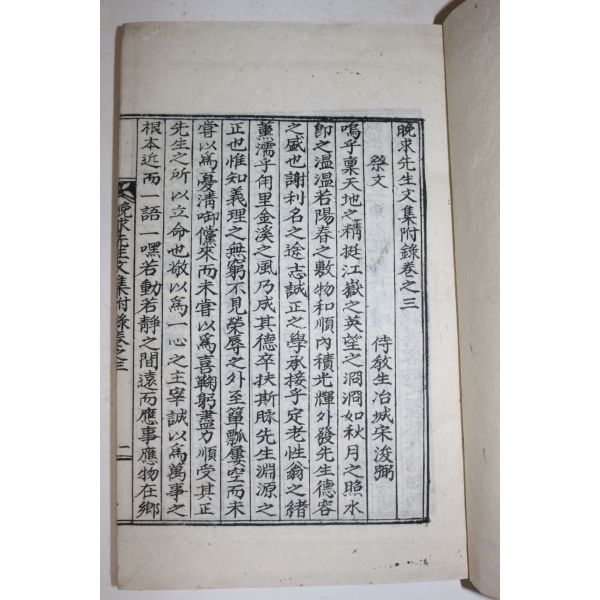 晩求先生文集附錄卷之三
祭文
侍敎生冶城宋浚弼
嗚乎稟天地之精挺江嶽之英望之涸涸如秋月之照水
卽之溫溫若陽春之敷物和順內積光輝外發先生德容
之盛也謝利名之途志誠正之學承接乎定老性翁之緖
薰濡乎甪里金溪之風乃成其德卒扶斯脉先生淵源之
正也惟知義理之無窮不見榮辱之外至簞瓢屢空而未
嘗以爲憂淸啣儻來而未嘗以爲喜鞠躬盡力順受其正
先生之所以立命也敬以爲一心之主宰誠以爲萬事之
根本近而一語一嘿若動若靜之間遠而應事應物在鄕
晩求先生文集附錄卷之三
一